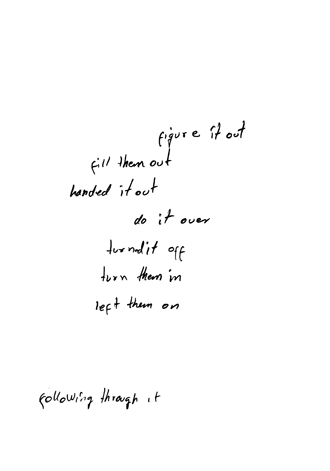 figure it out
fill them out
handed it out
do it over
turned it off
turn them in
left them on
following through it